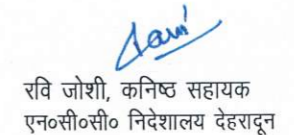 रवि जोशी, कनिष्ठ सहायक
एन०सी०सी० निदेशालय देहरादून